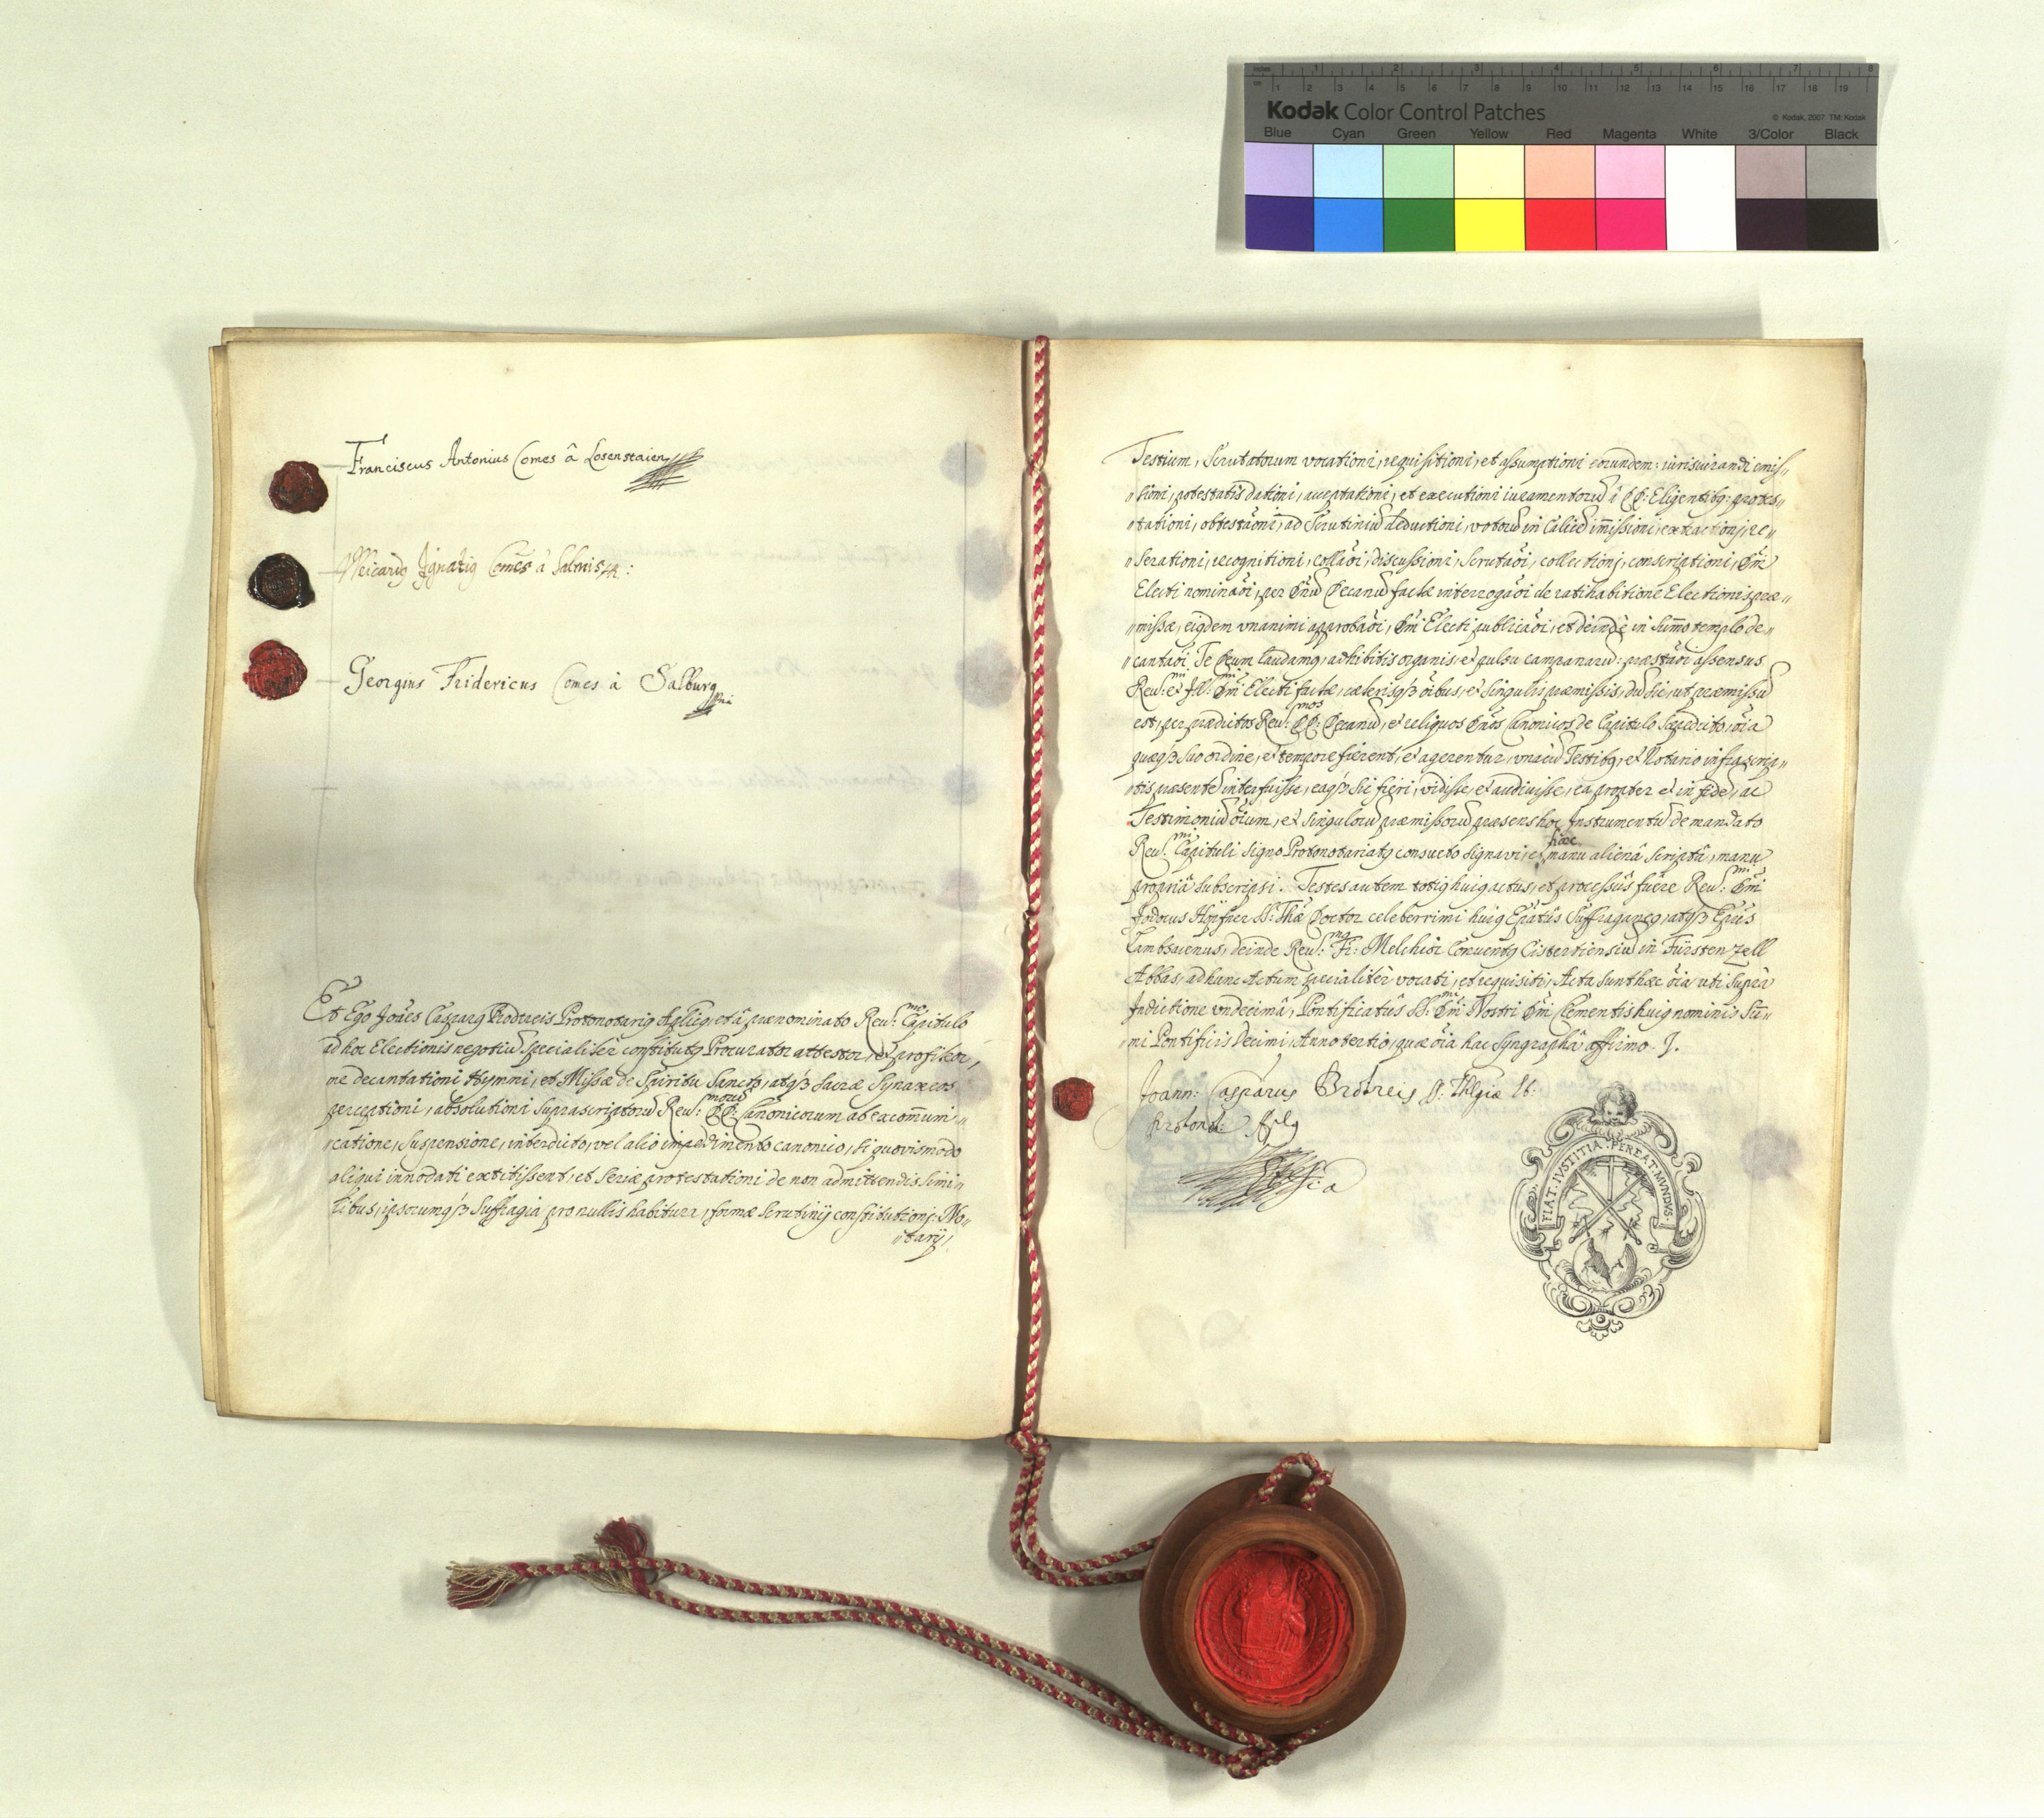 inches 1 2 3 4 5 6 7 8
cm 1 2 3 4 5 6 7 8 9 10 11 12 13 14 15 16 17 18 19
Kodak Color Control Patches
© Kodak, 2007 TM: Kodak
Blue Cyan Green Yellow Red Magenta White 3/Color Black
Franciscus Antonius Comes â Losenstaien
Ignatiq Comes à Salmis
Georgius Fridericus Comes à Salburg
Et Ego Joões Casparq Brodreis Protonotariq Aplicq, et â prænominato Reu: mo Capitulo
ad hoc Electionis negotiũ specialitèr constitutq Procurator attestor, et profiteor,
me decantationi Hymni, et Missæ de Spiritu Sancto, atqʒ sacræ Synaxeos
perceptioni, absolutioni suprascriptorũ Reu: morũ DD: Canonicorum ab excom̃uni-
catione, suspensione, interdicto, vel alio impedimento canonico, si quovismodo
aliqui innodati extitissent, et seriæ protestationi de non admittendis simi-
libus, ipsorumqʒ suffragia pro nullis habituri, formæ Scrutinij constitutionj: No-
tarij,
Testium, Scrutatorum vocationi, requisitioni, et assumptioni eorundem: iurisiurandi emis-
sioni, potestatis dationi, acceptationi, et executioni iuramentorũ â DD: Eligentibq: protes-
tationi, obtestaõni, ad Scrutiniũ deductioni, votorũ in Calicẽ im̃issioni, extractionj, re-
serationi, recognitioni, collaõi, discussioni, scrutaõi, collectionj, conscriptioni, Dñi
Electi nominaõi, per Dñũ Decanũ factæ interrogaõi de ratihabitione Electionis præ-
missæ, eiqdem vnanimi approbaõi, Dñi Electi publicaõi, et deindè in sum̃o templo de-
cantaõi Te Deum laudamq, adhibitis organis, et pulsu campanarũ: præstaõi assensus
Reu: mi et Ill: mi Dñi Electi factæ, cæterisqʒ õibus, et singulis præmissis, dũ sic, ut præmissũ
est, per prædictos Reu: mos DD: Decanũ, et reliquos Dños Canonicos de Capitulo sæpedicto, õia
quæqʒ suo ordine, et tempore fierent, et agerentur, vnàcũ Testibq, et Notario infrascrip-
tis præsentẽ interfuisse, eaqʒ sic fieri, vidisse, et audiuisse, ea propter et in fidẽ, ac
Testimoniũ õium, et singulorũ præmissorũ præsens hoc Instrumentũ de mandato
Reu: mi Capituli signo Protonotariatq consueto signavi, et hæc manu alienâ scriptâ, manu
propriâ subscripsi. Testes autem totiq huiq actus, et processûs fuêre Reu: mi Dñi
Jodocus Höpfner SS: Thæ Doctor celeberrimi huiq Epatûs Suffraganeq, atqʒ Epũs
Lambsacensis, deinde Reu: mq Fr: Melchior Conventq Cistertiensiũ in Fürstenzell
Abbas, ad hunc Actum specialitèr vocati, et requisiti, Acta sunt hæc õia uti suprà
Indictione vndecimâ, Pontificatûs SS: mi Dñi Nostri Dñi Clementis huiq nominis Sum̃-
mi Pontificis Decimi, Anno tertio, quæ õia hac Syngraphâ affirmo
Joann: Casparus Brodreis SS: Thlgiæ
Protonot: Aplq
FIAT. IVSTITIA. PEREAT. MVNDVS.